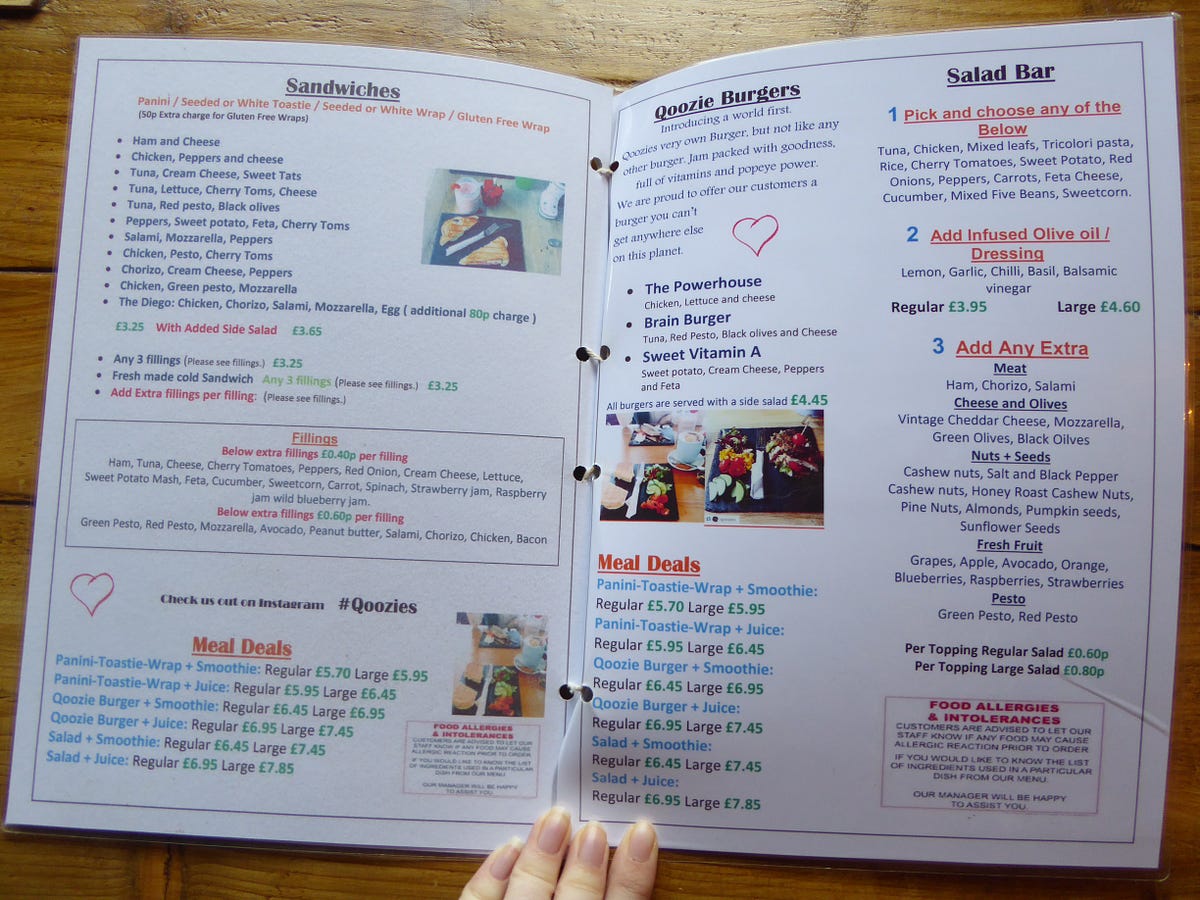 Sandwiches
Panini / Seeded or White Toastie / Seeded or White Wrap / Gluten Free Wrap
(50p Extra charge for Gluten Free Wraps)
• Ham and Cheese
• Chicken, Peppers and cheese
• Tuna, Cream Cheese, Sweet Tats
• Tuna, Lettuce, Cherry Toms, Cheese
• Tuna, Red pesto, Black olives
• Peppers, Sweet potato, Feta, Cherry Toms
• Salami, Mozzarella, Peppers
• Chicken, Pesto, Cherry Toms
• Chorizo, Cream Cheese, Peppers
• Chicken, Green pesto, Mozzarella
• The Diego: Chicken, Chorizo, Salami, Mozzarella, Egg ( additional 80p charge )
£3.25 With Added Side Salad £3.65
• Any 3 fillings (Please see fillings.) £3.25
• Fresh made cold Sandwich Any 3 fillings (Please see fillings.) £3.25
• Add Extra fillings per filling: (Please see fillings.)
Fillings
Below extra fillings £0.40p per filling
Ham, Tuna, Cheese, Cherry Tomatoes, Peppers, Red Onion, Cream Cheese, Lettuce,
Sweet Potato Mash, Feta, Cucumber, Sweetcorn, Carrot, Spinach, Strawberry jam, Raspberry
jam wild blueberry jam.
Below extra fillings £0.60p per filling
Green Pesto, Red Pesto, Mozzarella, Avocado, Peanut butter, Salami, Chorizo, Chicken, Bacon
Check us out on Instagram #Qoozies
Meal Deals
Panini-Toastie-Wrap + Smoothie: Regular £5.70 Large £5.95
Panini-Toastie-Wrap + Juice: Regular £5.95 Large £6.45
Qoozie Burger + Smoothie: Regular £6.45 Large £6.95
Qoozie Burger + Juice: Regular £6.95 Large £7.45
Salad + Smoothie: Regular £6.45 Large £7.45
Salad + Juice: Regular £6.95 Large £7.85
FOOD ALLERGIES
& INTOLERANCES
CUSTOMERS ARE ADVISED TO LET OUR
STAFF KNOW IF ANY FOOD MAY CAUSE
ALLERGIC REACTION PRIOR TO ORDER
IF YOU WOULD LIKE TO KNOW THE LIST
OF INGREDIENTS USED IN A PARTICULAR
DISH FROM OUR MENU
OUR MANAGER WILL BE HAPPY
TO ASSIST YOU.
Qoozie Burgers
Introducing a world first.
Qoozies very own Burger, but not like any
other burger. Jam packed with goodness,
full of vitamins and popeye power.
We are proud to offer our customers a
burger you can't
get anywhere else
on this planet.
• The Powerhouse
Chicken, Lettuce and cheese
• Brain Burger
Tuna, Red Pesto, Black olives and Cheese
• Sweet Vitamin A
Sweet potato, Cream Cheese, Peppers
and Feta
All burgers are served with a side salad £4.45
Meal Deals
Panini-Toastie-Wrap + Smoothie:
Regular £5.70 Large £5.95
Panini-Toastie-Wrap + Juice:
Regular £5.95 Large £6.45
Qoozie Burger + Smoothie:
Regular £6.45 Large £6.95
Qoozie Burger + Juice:
Regular £6.95 Large £7.45
Salad + Smoothie:
Regular £6.45 Large £7.45
Salad + Juice:
Regular £6.95 Large £7.85
Salad Bar
1 Pick and choose any of the
Below
Tuna, Chicken, Mixed leafs, Tricolori pasta,
Rice, Cherry Tomatoes, Sweet Potato, Red
Onions, Peppers, Carrots, Feta Cheese,
Cucumber, Mixed Five Beans, Sweetcorn.
2 Add Infused Olive oil /
Dressing
Lemon, Garlic, Chilli, Basil, Balsamic
vinegar
Regular £3.95 Large £4.60
3 Add Any Extra
Meat
Ham, Chorizo, Salami
Cheese and Olives
Vintage Cheddar Cheese, Mozzarella,
Green Olives, Black Oilves
Nuts + Seeds
Cashew nuts, Salt and Black Pepper
Cashew nuts, Honey Roast Cashew Nuts,
Pine Nuts, Almonds, Pumpkin seeds,
Sunflower Seeds
Fresh Fruit
Grapes, Apple, Avocado, Orange,
Blueberries, Raspberries, Strawberries
Pesto
Green Pesto, Red Pesto
Per Topping Regular Salad £0.60p
Per Topping Large Salad £0.80p
FOOD ALLERGIES
& INTOLERANCES
CUSTOMERS ARE ADVISED TO LET OUR
STAFF KNOW IF ANY FOOD MAY CAUSE
ALLERGIC REACTION PRIOR TO ORDER
IF YOU WOULD LIKE TO KNOW THE LIST
OF INGREDIENTS USED IN A PARTICULAR
DISH FROM OUR MENU.
OUR MANAGER WILL BE HAPPY
TO ASSIST YOU.